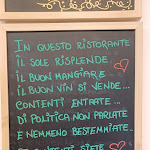 IN QUESTO RISTORANTE
IL SOLE RISPLENDE
IL BUON MANGIARE
IL BUON VIN SI VENDE...
CONTENTI ENTRATE...
DI POLITICA NON PARLATE
E NEMMENO BESTEMMIATE...
SIETE